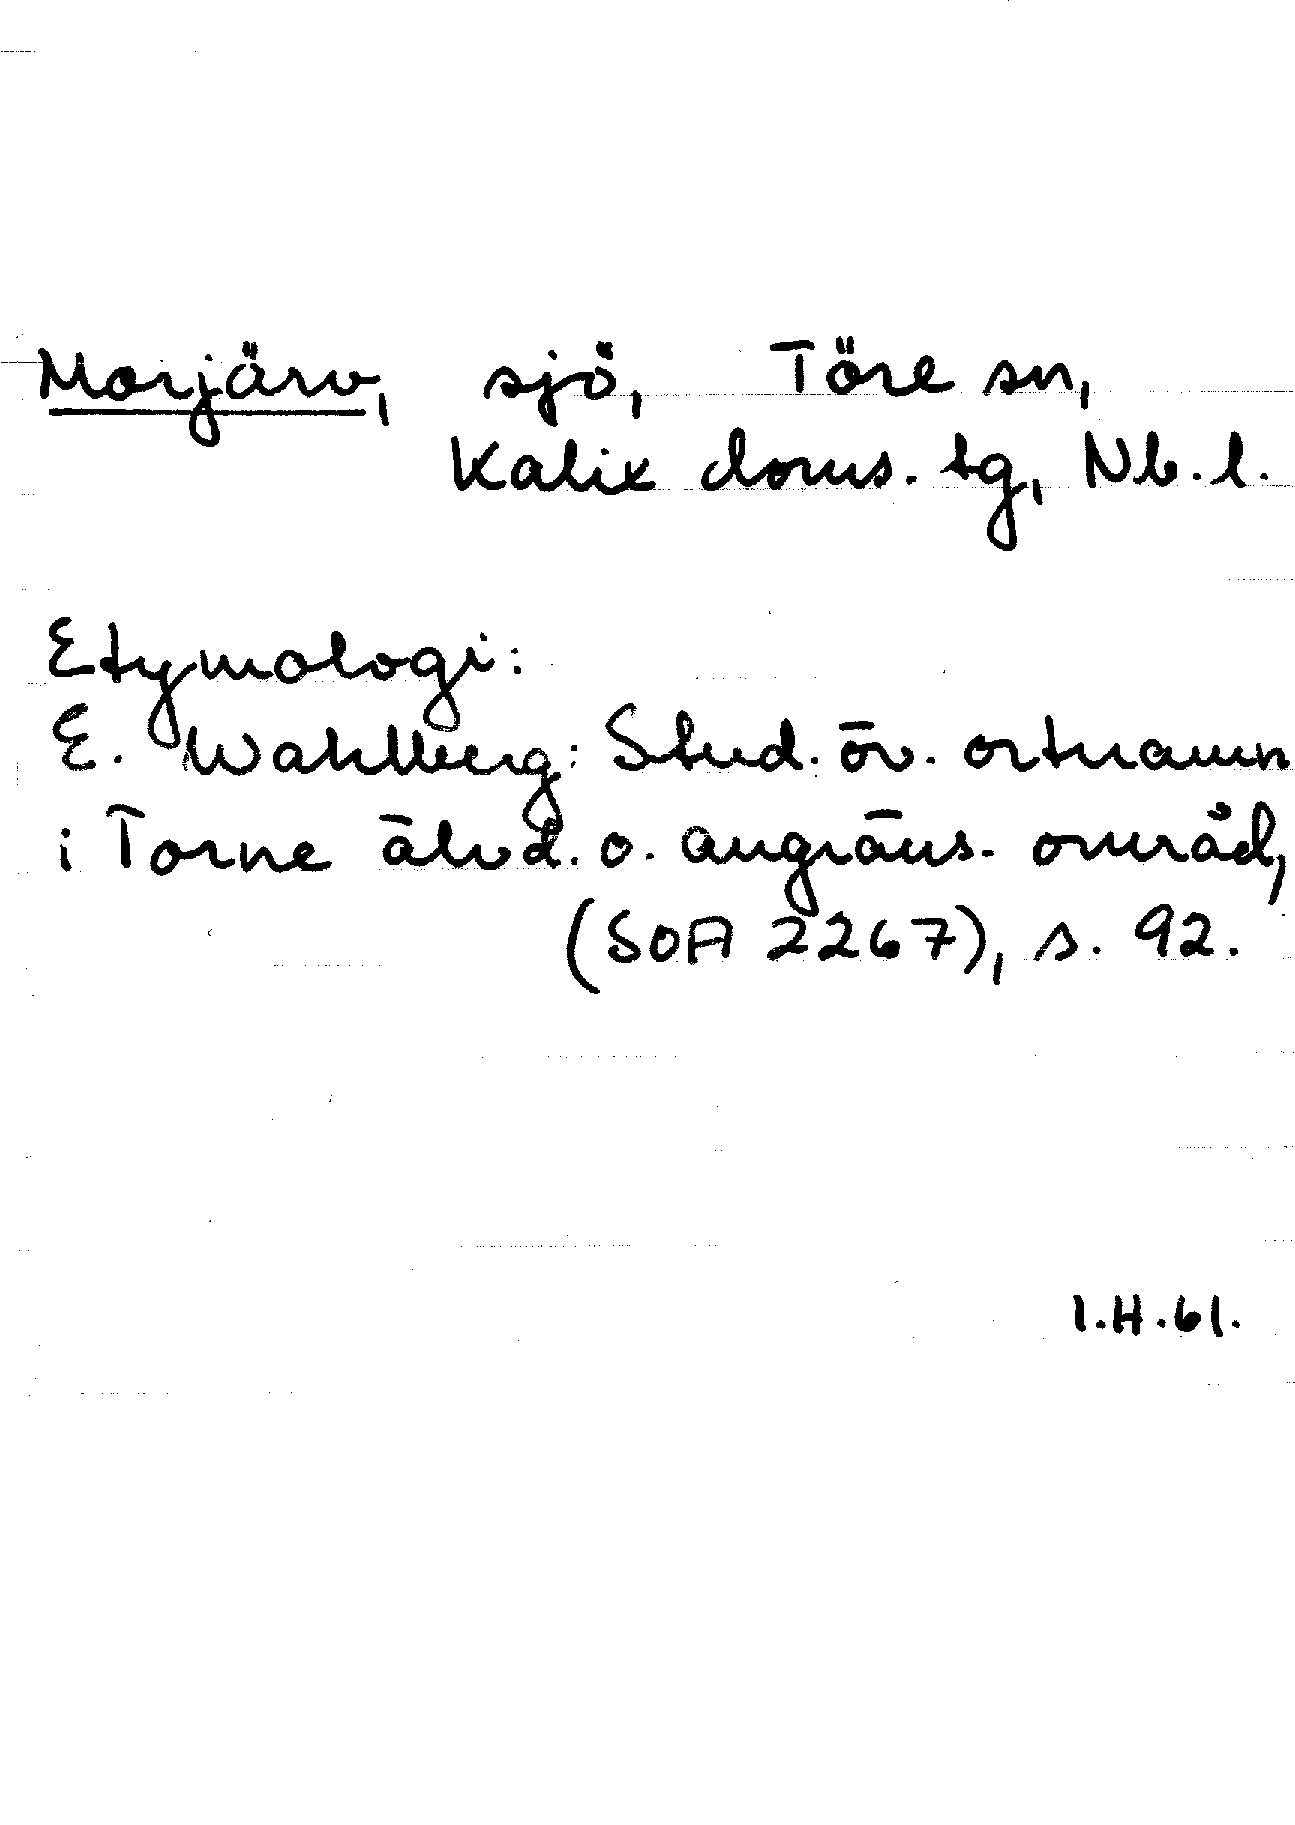 Morjärv, sjö, Töre sn,
Kalix doms. tg, Nb. l.
Etymologi:
E. Wahlberg: Stud. öv. ortnamn
i Torne älvd. o. angräns. områd,
(SOA 2267), s. 92.
I.H.61.